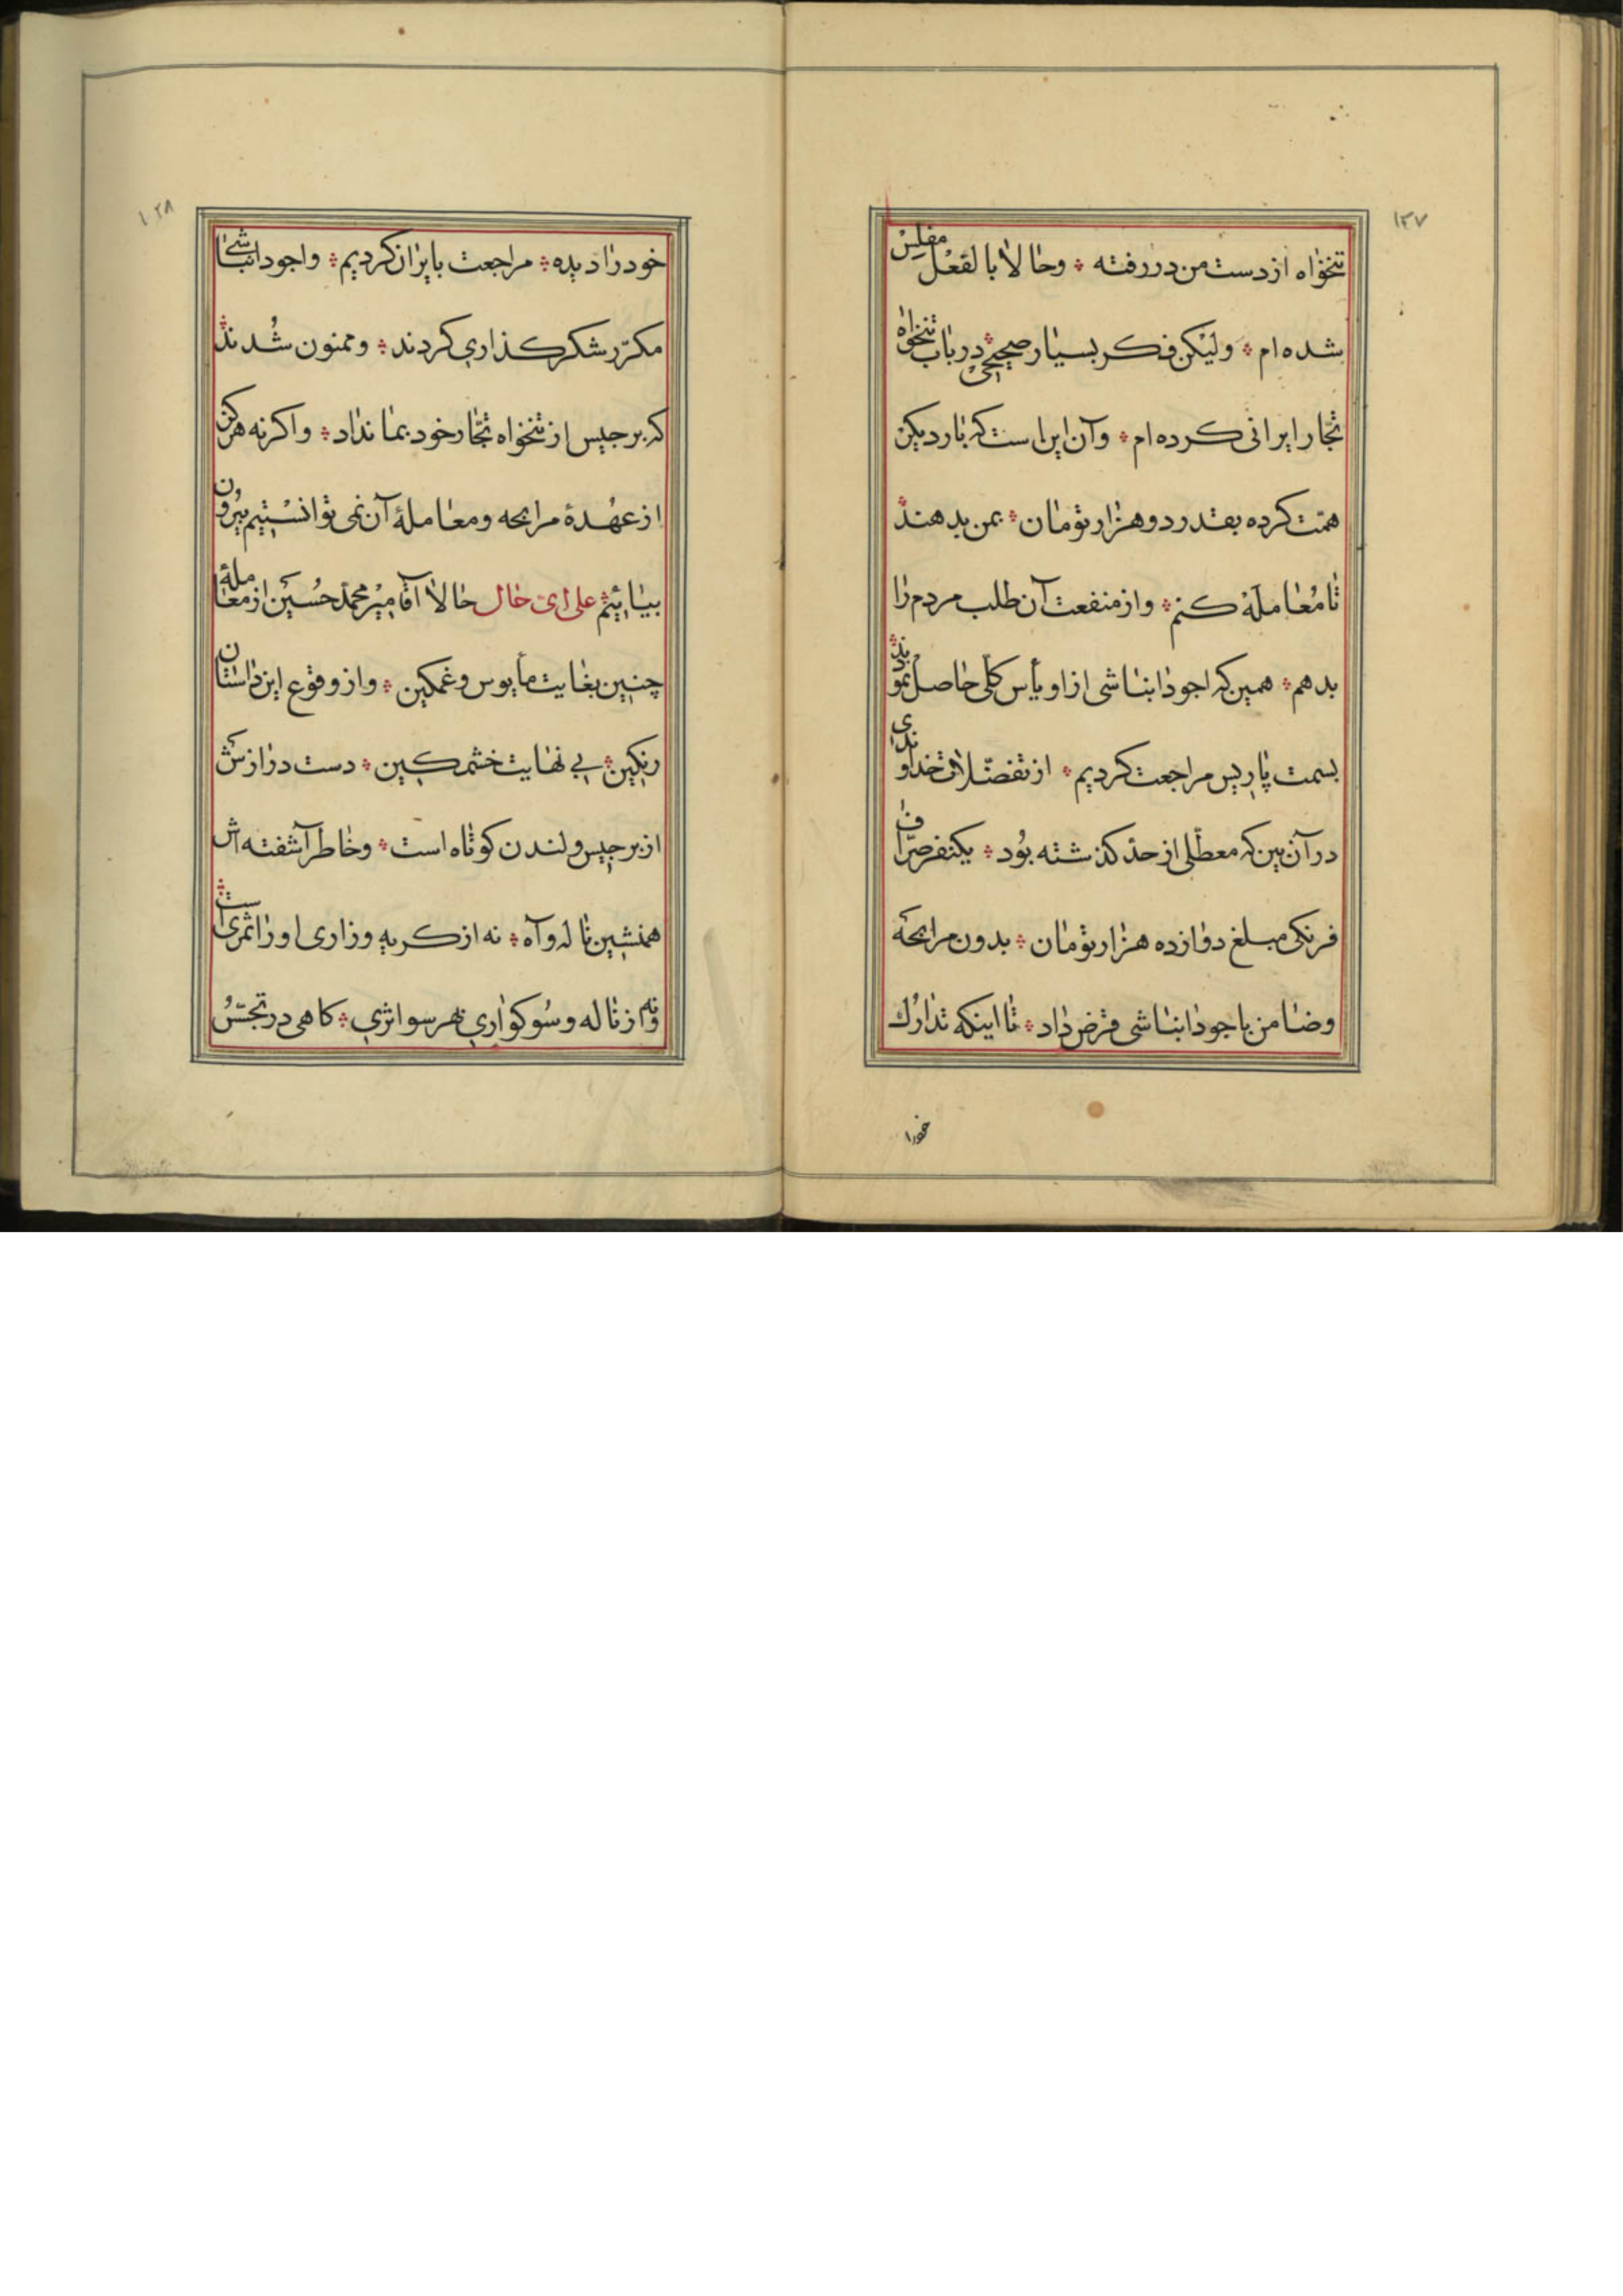 ۱۲۷
تنخواه از دست من در رفته ؞ و حالا بالفعل مفلس
شده ام ؞ ولیکن فکر بسیار صحیحی در باب تنخواه
تجّار ایرانی کرده ام ؞ و آن این است که بار دیکر
همّت کرده بقدر دو هزار تومان ؞ بمن بدهند
تا مُعامله کنم ؞ و از منفعت آن طلب مردم را
بدهم ؞ همین که اجودانباشی از او یأس کلّی حاصل نمودند ؞
بسمت پاریس مراجعت کردیم ؞ از تفضّلات خداوندی
در آن بین که معطّلی از حدّ کذشته بُود ؞ یکنفر صرّاف
فرنکی مبلغ دوازده هزار تومان ؞ بدون مرابحه
و ضامن باجودانباشی قرض داد ؞ تا اینکه تدارُک
خودرا
۱۲۸
خود را دیده ؞ مراجعت بایران کردیم ؞ و اجودانباشی
مکرّر شکرکذاری کردند ؞ و ممنون شُدند ؞
که برجیس از تنخواه تجّار خود بما نداد ؞ و اکرنه هرکز
از عُهدهٔ مرابحه و معاملهٔ آن نمی توانستیم بیرون
بیائیم ؞ علی ای حال حالا آقا میر محمّد حُسین از معاملهٔ
چنین بغایت مأیوس و غمکین ؞ و از وقوع این داستان
رنکین ؞ بی نهایت خشمکین ؞ دست درازش
از برجیس و لندن کوتاه است ؞ و خاطر آشفته اش
همنشین ناله و آه ؞ نه از کریه و زاری او را ثمری است ؞
و نه از ناله و سُوکواری بهر سو اثری ؞ کاهی در تجسّسُ